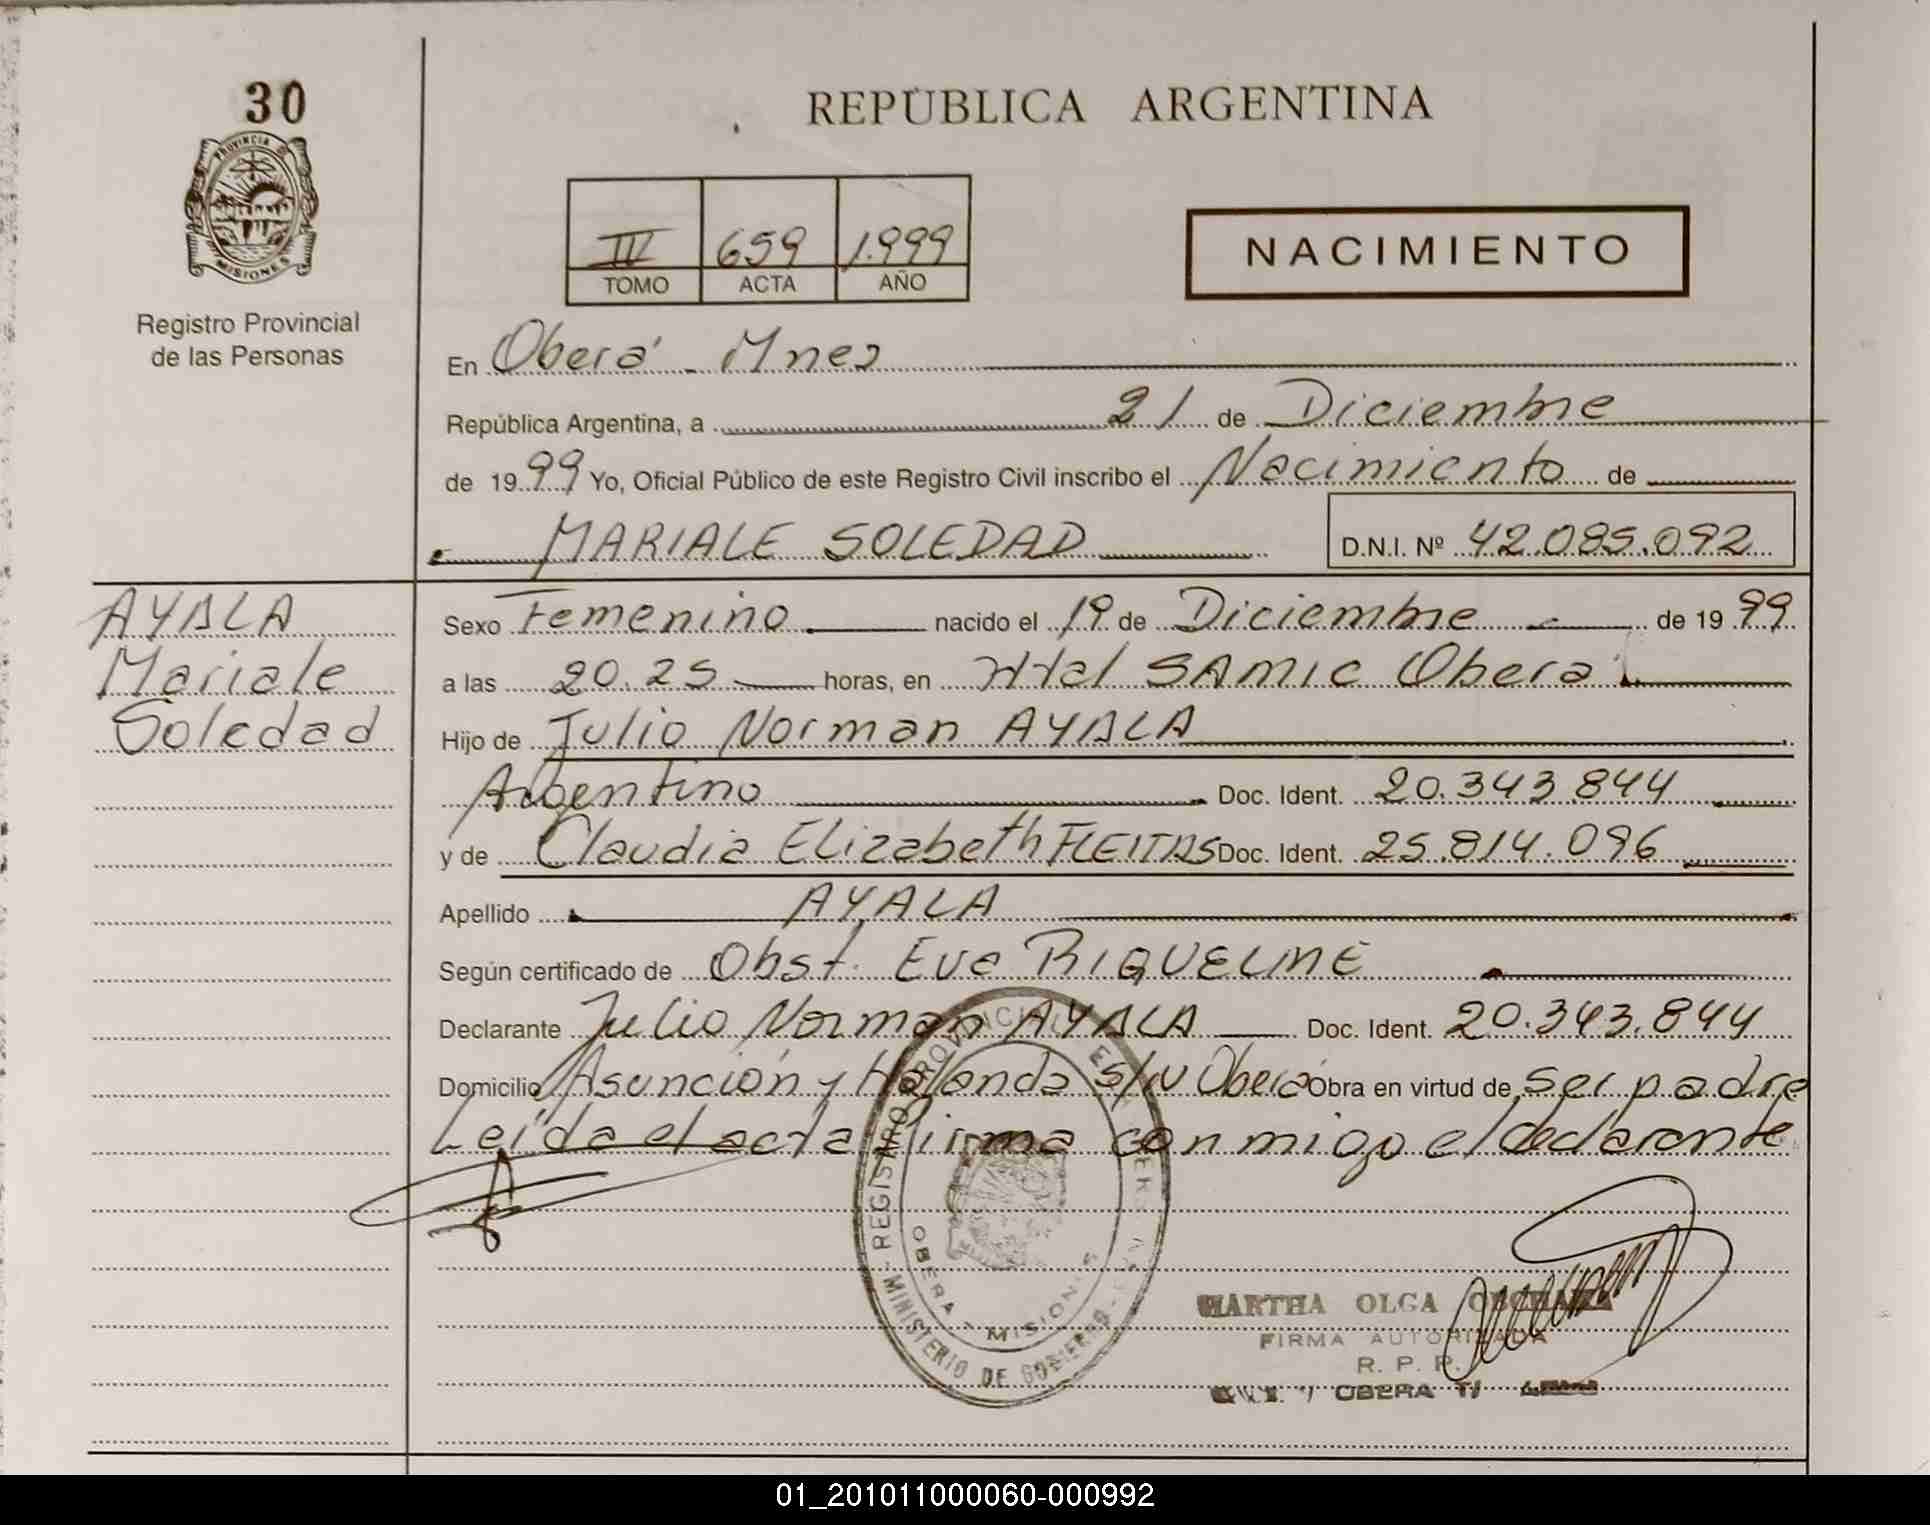 30
PROVINCIA
MISIONES
Registro Provincial
de las Personas
REPÚBLICA ARGENTINA
IV 659 1.999
TOMO ACTA AÑO
NACIMIENTO
En Oberá - Mnes
República Argentina, a 21 de Diciembre
de 1999 Yo, Oficial Público de este Registro Civil inscribo el Nacimiento de
MARIALE SOLEDAD D.N.I. Nº 42.085.092
AYALA
Mariale
Soledad
Sexo Femenino nacido el 19 de Diciembre de 1999
a las 20.25 horas, en Htal SAMIC Oberá
Hijo de Julio Norman AYALA
Argentino Doc. Ident. 20.343.844
y de Claudia Elizabeth FLEITAS Doc. Ident. 25.814.096
Apellido AYALA
Según certificado de Obst. Eva RIQUELME
Declarante Julio Norman AYALA Doc. Ident. 20.343.844
Domicilio Asunción y Holanda s/N Oberá Obra en virtud de ser padre
Leída el acta firma conmigo el declarante
REGISTRO PROVINCIAL
OBERA - MISIONES
MINISTERIO DE GOBIERNO
MARTHA OLGA
FIRMA AUTORIZADA
R. P. P.
OBERA
01_201011000060-000992